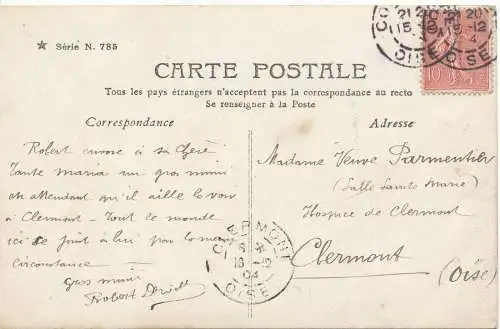 ★ Série N. 785
CARTE POSTALE
Tous les pays étrangers n'acceptent pas la correspondance au recto
Se renseigner à la Poste
Correspondance
Adresse
Robert envoie à sa chère
Tante Maria un gros mimi
en attendant qu'il aille la voir
à Clermont - Tout le monde
ici se joint à lui pour la
circonstance -
Gros mimi
Robert
Madame Veuve Parmentier
(Salle Sainte Marie)
Hospice de Clermont
Clermont
(Oise)
CLERMONT
18 -12
04
OISE
15 -12
OISE
10